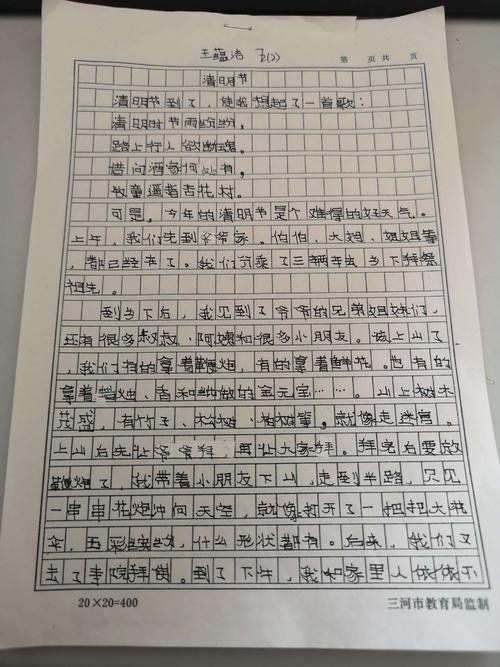 王蕴洁 五(2) 第 页共 页
清明节
清明节到了，使我想起了一首歌：
清明时节雨纷纷，
路上行人欲断魂。
借问酒家何处有，
牧童遥指杏花村。
可是，今年的清明节是个难得的好天气。
上午，我们先到爷爷家。伯伯、大妈、姐姐等
，都已经来了。我们分乘了三辆车去乡下拜祭
祖先。
到乡下后，我见到了爷爷的兄弟姐妹们，
还有很多叔叔、阿姨和很多小朋友。该上山了
，我们有的拿着鞭炮，有的拿着鲜花。也有的
拿着蜡烛、香和 做的金元宝……。山上树木
茂盛，有竹子、松树、 树等。就像走迷宫。
上山后先让爷爷拜，再让大家拜。拜完后要放
鞭炮了，我带着小朋友下山，走到半路，只见
一串串花炮冲向天空，就像打开了一把把大花
伞，五彩缤纷，什么形状都有。后来，我们又
去了李院拜祭。到了下午，我和家里人依依不
20×20=400 三河市教育局监制